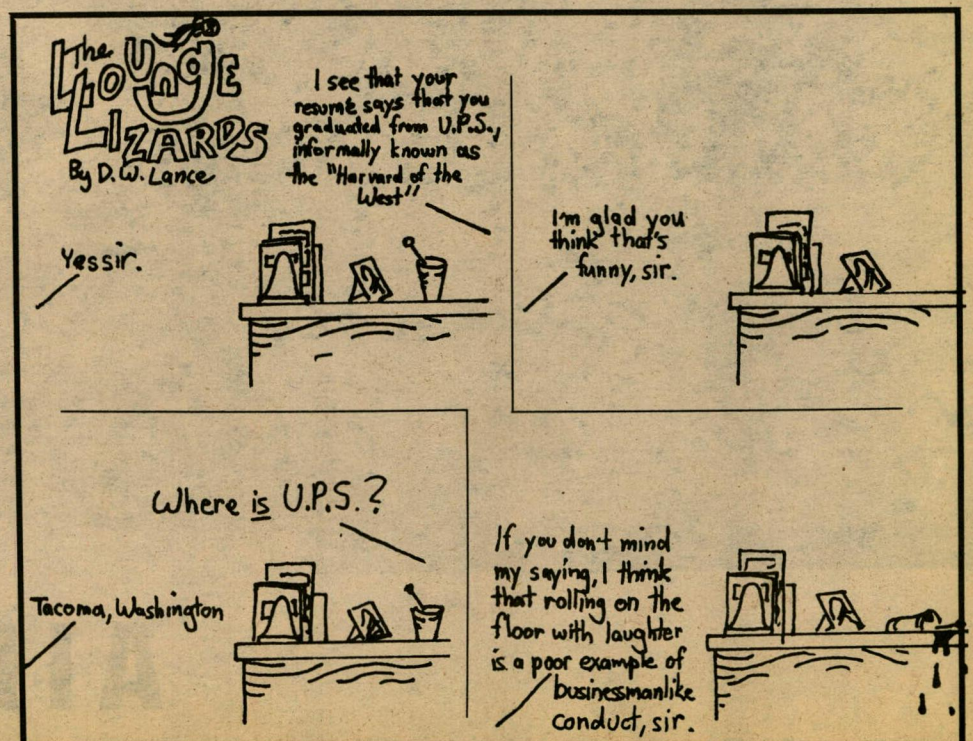 The
LOUNGE
LIZARDS
By D.W. Lance
I see that your
resumé says that you
graduated from U.P.S.,
informally known as
the "Harvard of the
West"
Yessir.
I'm glad you
think that's
funny, sir.
Where is U.P.S.?
Tacoma, Washington
If you don't mind
my saying, I think
that rolling on the
floor with laughter
is a poor example of
businessmanlike
conduct, sir.